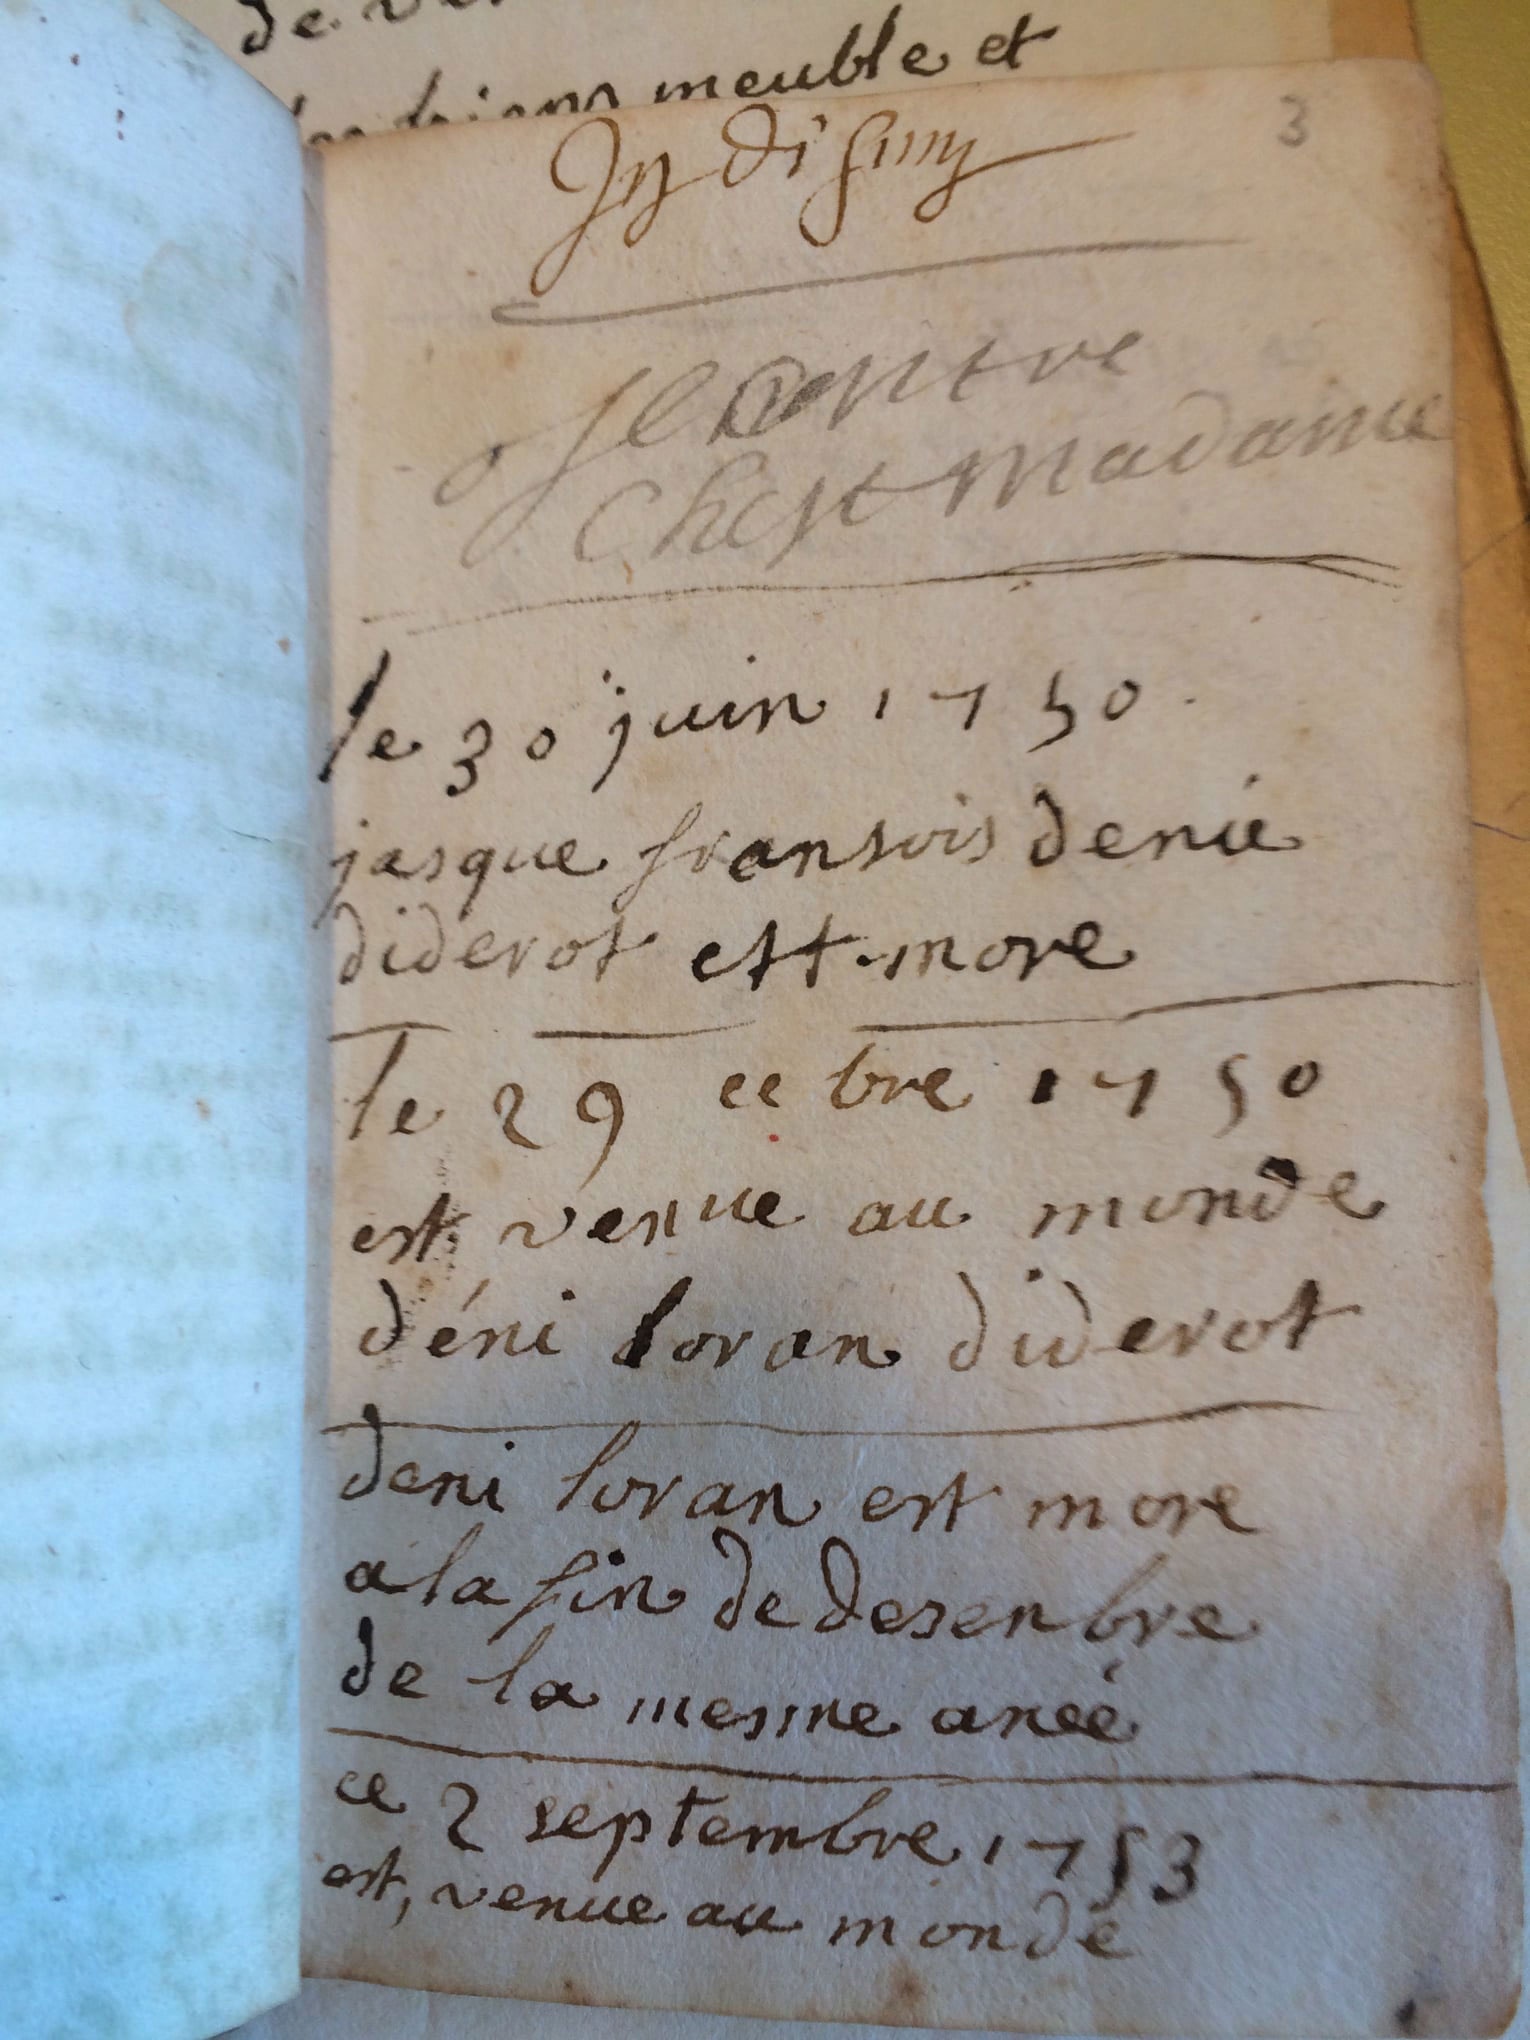 de
meuble et
3
Je Rentre
Chest Madame
le 30 juin 1750
jasque fransois denie
diderot est more
le 29 ce bre 1750
est venue au monde
déni loran diderot
deni loran est more
a la fin de desenbre
de la mesme aneé
ce 2 septembre 1753
est, venue au monde